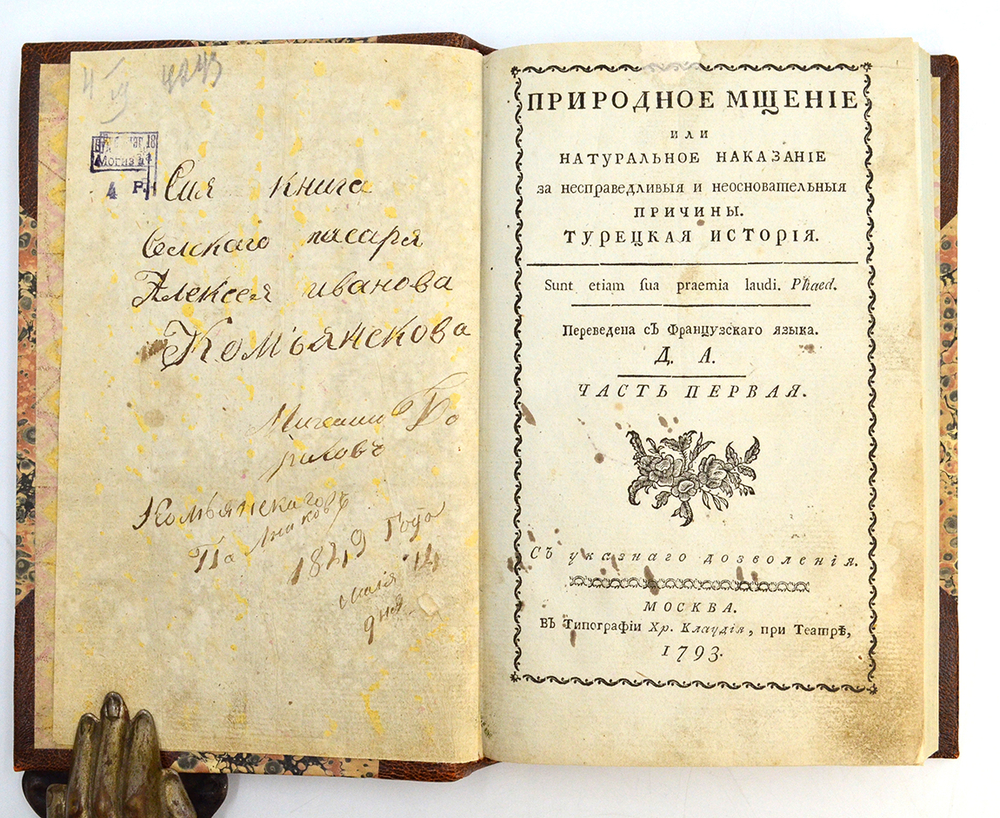 4243
4 Р.
Сия книга
Селскаго писаря
Алексея иванова
Комъянскова
Михаи
Комъянскаго
1849 Года
маія 14
дня
ПРИРОДНОЕ МЩЕНІЕ
ИЛИ
НАТУРАЛЬНОЕ НАКАЗАНІЕ
за несправедливыя и неосновательныя
ПРИЧИНЫ.
ТУРЕЦКАЯ ИСТОРІЯ.
Sunt etiam ſua praemia laudi. Phaed.
Переведена съ Французскаго языка.
Д. А.
ЧАСТЬ ПЕРВАЯ.
Съ указнаго дозволенія.
МОСКВА.
Въ Типографіи Хр. Клаудія, при Театрѣ,
1793.